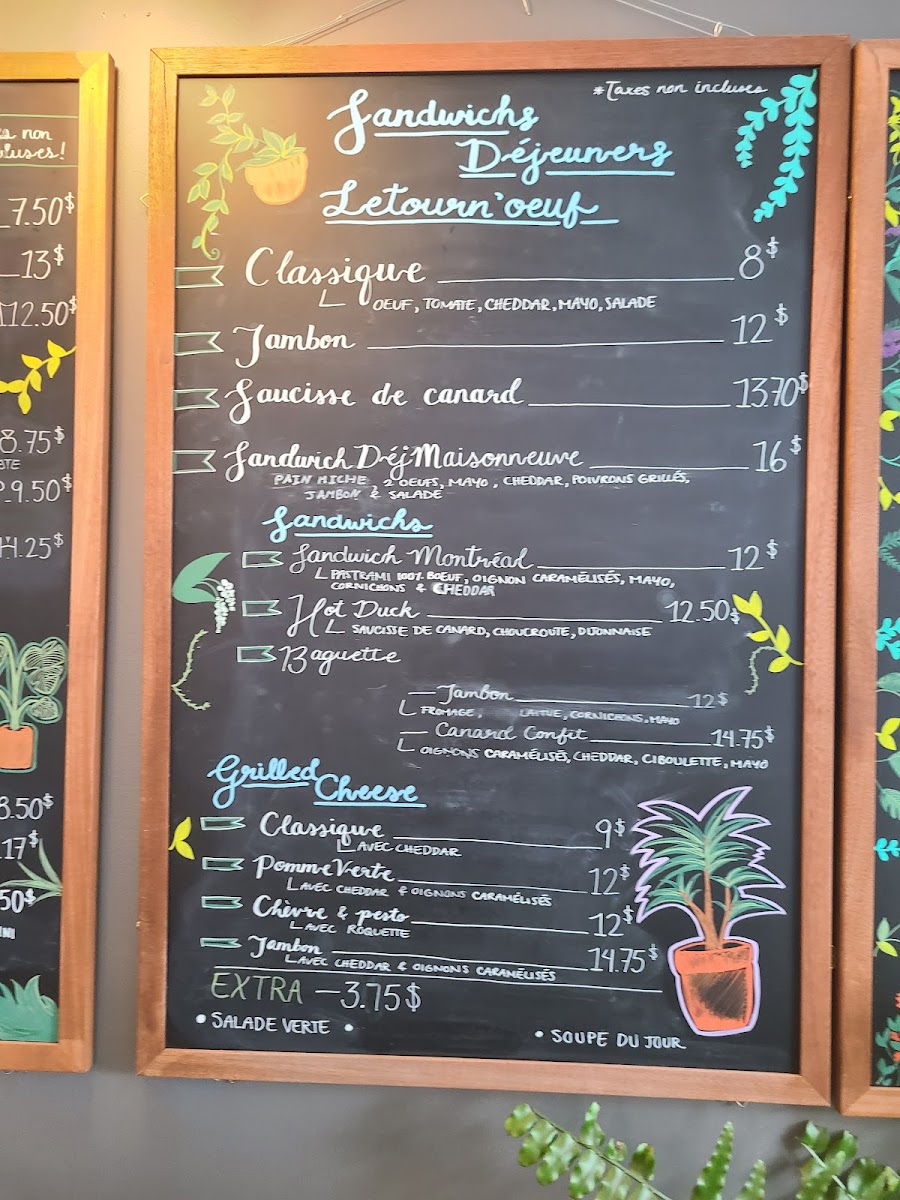 s non
luses!
7.50$
13$
12.50$
8.75$
9.50$
14.25$
8.50$
17$
50$
INI
*Taxes non incluses
Sandwichs
Déjeuners
Letourn'oeuf
Classique 8$
OEUF, TOMATE, CHEDDAR, MAYO, SALADE
Jambon 12$
Saucisse de canard 13.70$
Sandwich Déj Maisonneuve 16$
PAIN MICHE, 2 OEUFS, MAYO, CHEDDAR, POIVRONS GRILLÉS,
JAMBON & SALADE
Sandwichs
Sandwich Montréal 12$
PASTRAMI 100% BOEUF, OIGNON CARAMÉLISÉS, MAYO,
CORNICHONS & CHEDDAR
Hot Duck 12.50$
SAUCISSE DE CANARD, CHOUCROUTE, DIJONNAISE
Baguette
— Jambon 12$
FROMAGE, LAITUE, CORNICHONS, MAYO
— Canard Confit 14.75$
OIGNONS CARAMÉLISÉS, CHEDDAR, CIBOULETTE, MAYO
Grilled
Cheese
Classique 9$
AVEC CHEDDAR
Pomme Verte 12$
AVEC CHEDDAR & OIGNONS CARAMÉLISÉS
Chèvre & pesto 12$
AVEC ROQUETTE
Jambon 14.75$
AVEC CHEDDAR & OIGNONS CARAMÉLISÉS
EXTRA — 3.75$
• SALADE VERTE •
• SOUPE DU JOUR